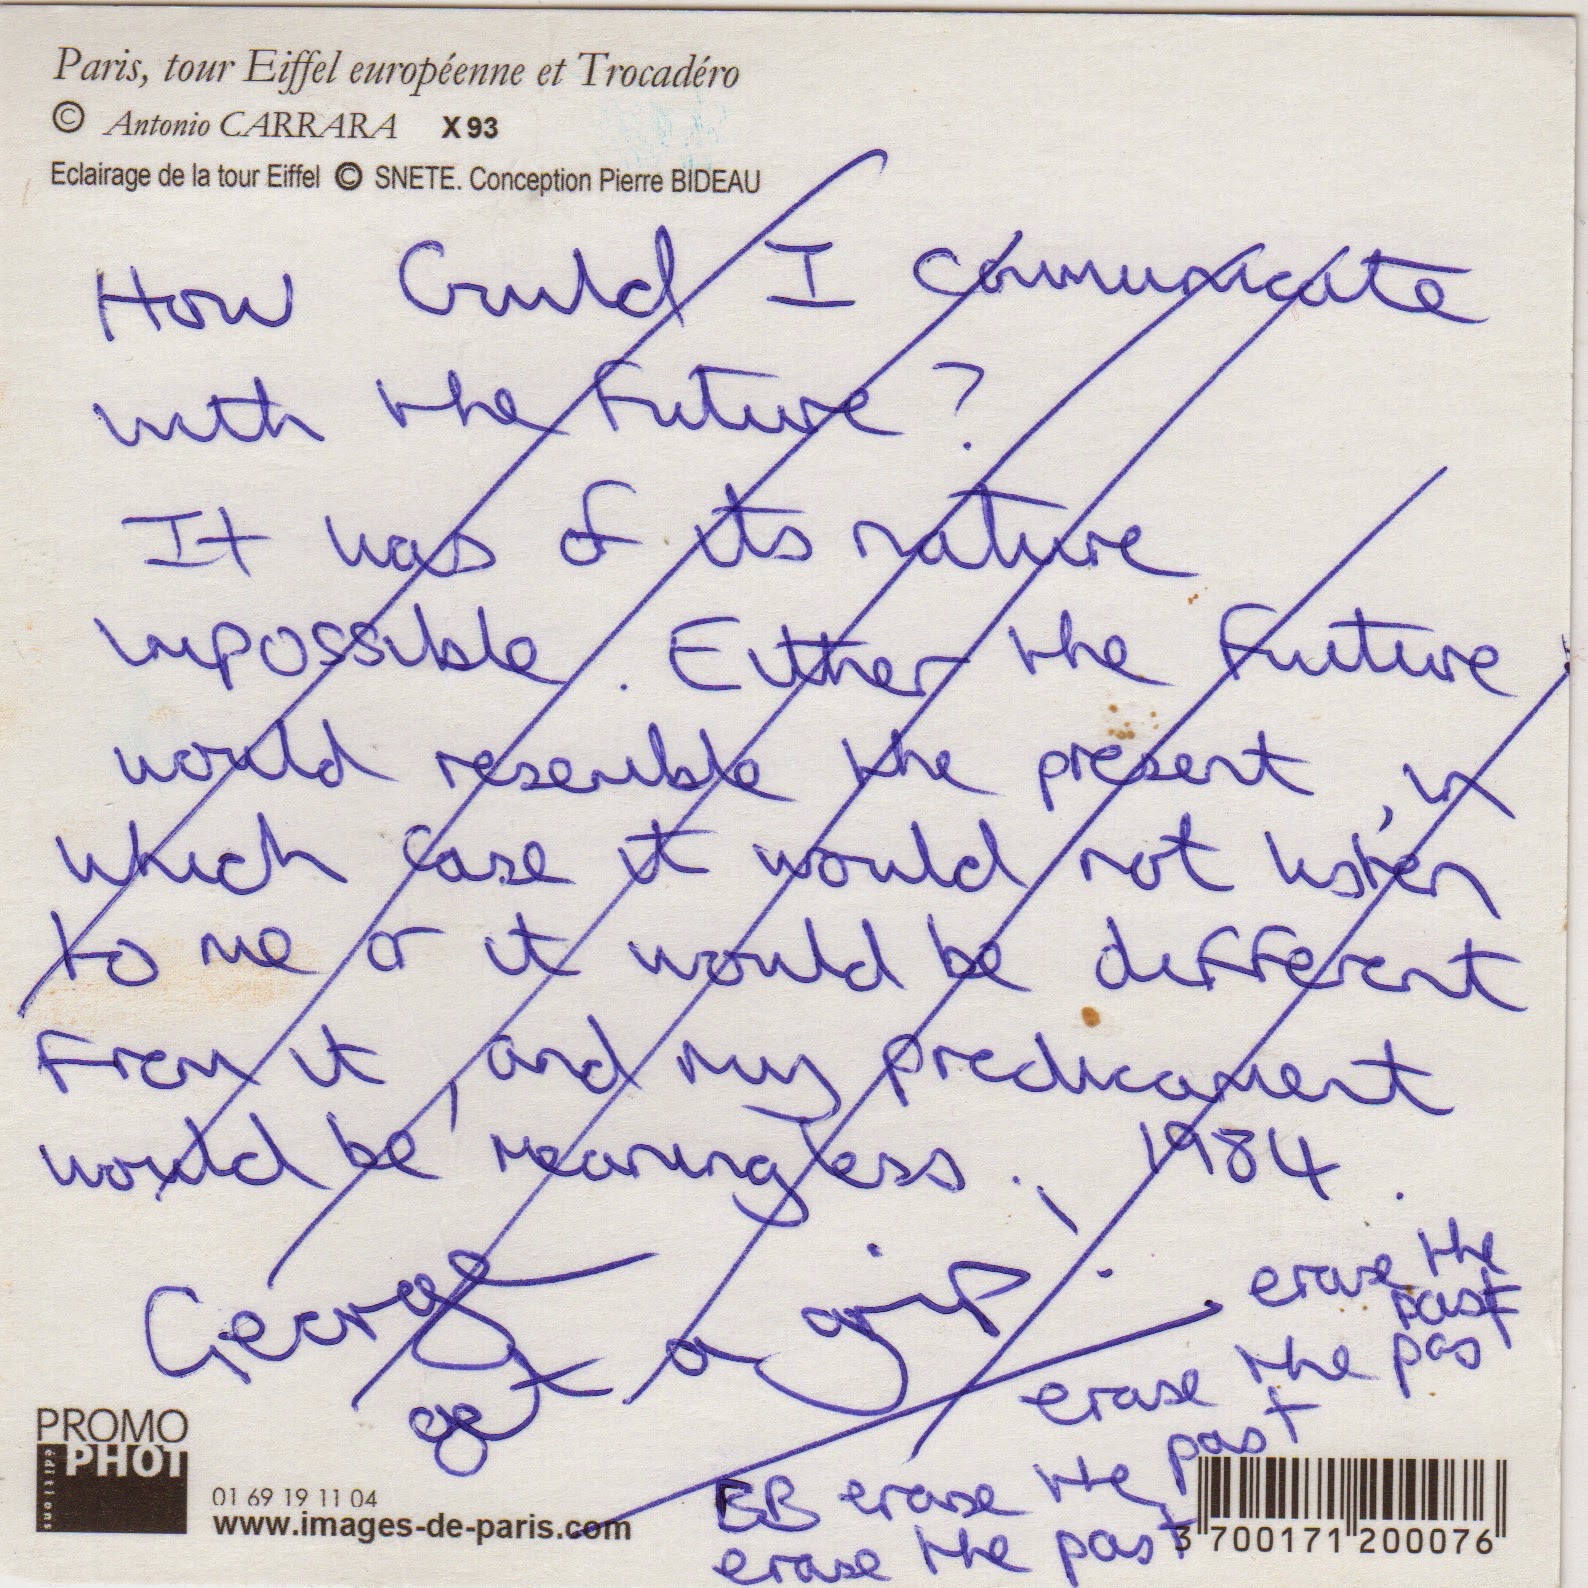 Paris, tour Eiffel européenne et Trocadéro
© Antonio CARRARA X 93
Eclairage de la tour Eiffel © SNETE. Conception Pierre BIDEAU
How could I communicate
with the future?
It was of its nature
impossible. Either the future
would resemble the present, in
which case it would not listen
to me or it would be different
from it, and my predicament
would be meaningless. 1984.
George
get a grip!
erase the
past
erase the past
BB erase the past
erase the past
PROMO
PHOT
éditions
01 69 19 11 04
www.images-de-paris.com
3 700171 200076